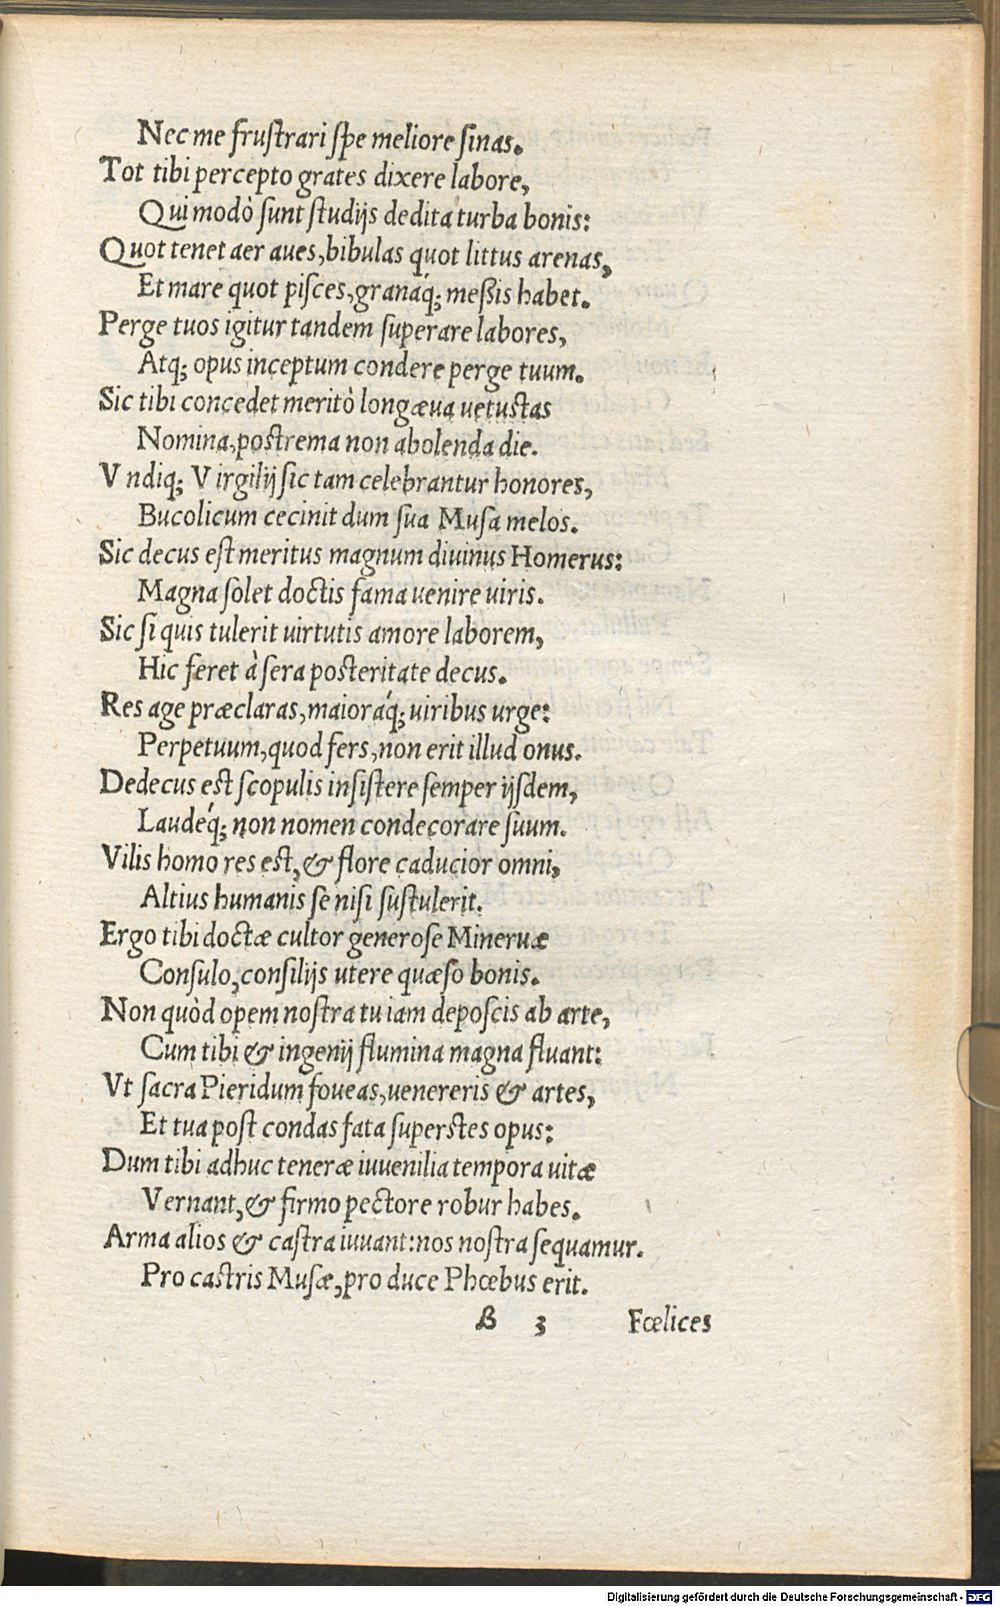 Nec me frustrari spe meliore sinas.
Tot tibi percepto grates dixere labore,
Qui modò sunt studijs dedita turba bonis:
Quot tenet aer aues, bibulas quot littus arenas,
Et mare quot pisces, granaq́; meßis habet.
Perge tuos igitur tandem superare labores,
Atq; opus inceptum condere perge tuum.
Sic tibi concedet meritò longæua uetustas
Nomina, postrema non abolenda die.
Vndiq; Virgilij sic tam celebrantur honores,
Bucolicum cecinit dum sua Musa melos.
Sic decus est meritus magnum diuinus Homerus:
Magna solet doctis fama uenire uiris.
Sic si quis tulerit uirtutis amore laborem,
Hic feret à sera posteritate decus.
Res age præclaras, maioraq́; uiribus urge:
Perpetuum, quod fers, non erit illud onus.
Dedecus est scopulis insistere semper ijsdem,
Laudeq́; non nomen condecorare suum.
Vilis homo res est, & flore caducior omni,
Altius humanis se nisi sustulerit.
Ergo tibi doctæ cultor generose Mineruæ
Consulo, consilijs utere quæso bonis.
Non quòd opem nostra tu iam deposcis ab arte,
Cum tibi & ingenij flumina magna fluant:
Vt sacra Pieridum foueas, venereris & artes,
Et tua post condas fata superstes opus:
Dum tibi adhuc teneræ iuuenilia tempora uitæ
Vernant, & firmo pectore robur habes.
Arma alios & castra iuuant: nos nostra sequamur.
Pro castris Musæ, pro duce Phœbus erit.
B 3 Fœlices
Digitalisierung gefördert durch die Deutsche Forschungsgemeinschaft - DFG